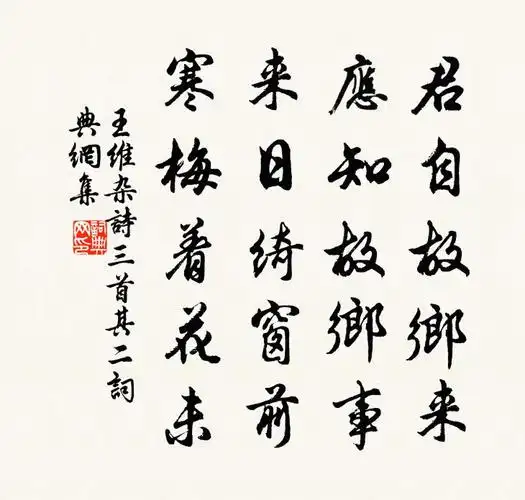 君自故鄉来
應知故鄉事
来日綺窗前
寒梅着花未
王維杂詩三首其二詞
典網集
詞典
网印